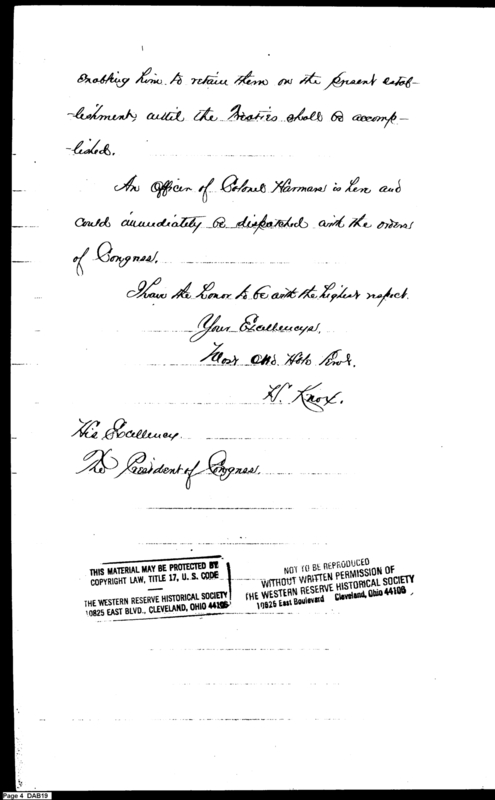 enabling him to retain them on the present estab-
lishment, until the Treaties shall be accomp-
-lished.
An Officer of Colonel Harmars is here and
could immediately be dispatched with the orders
of Congress.
I have the honor to be with the highest respect.
Your Excellencys,
Most Obd. Hble Servt.
H. Knox.
His Excellency
The President of Congress.
THIS MATERIAL MAY BE PROTECTED BY
COPYRIGHT LAW, TITLE 17, U. S. CODE
THE WESTERN RESERVE HISTORICAL SOCIETY
10825 EAST BLVD., CLEVELAND, OHIO 44106
NOT TO BE REPRODUCED
WITHOUT WRITTEN PERMISSION OF
THE WESTERN RESERVE HISTORICAL SOCIETY
10825 East Boulevard Cleveland, Ohio 44106
Page 4 DAB19